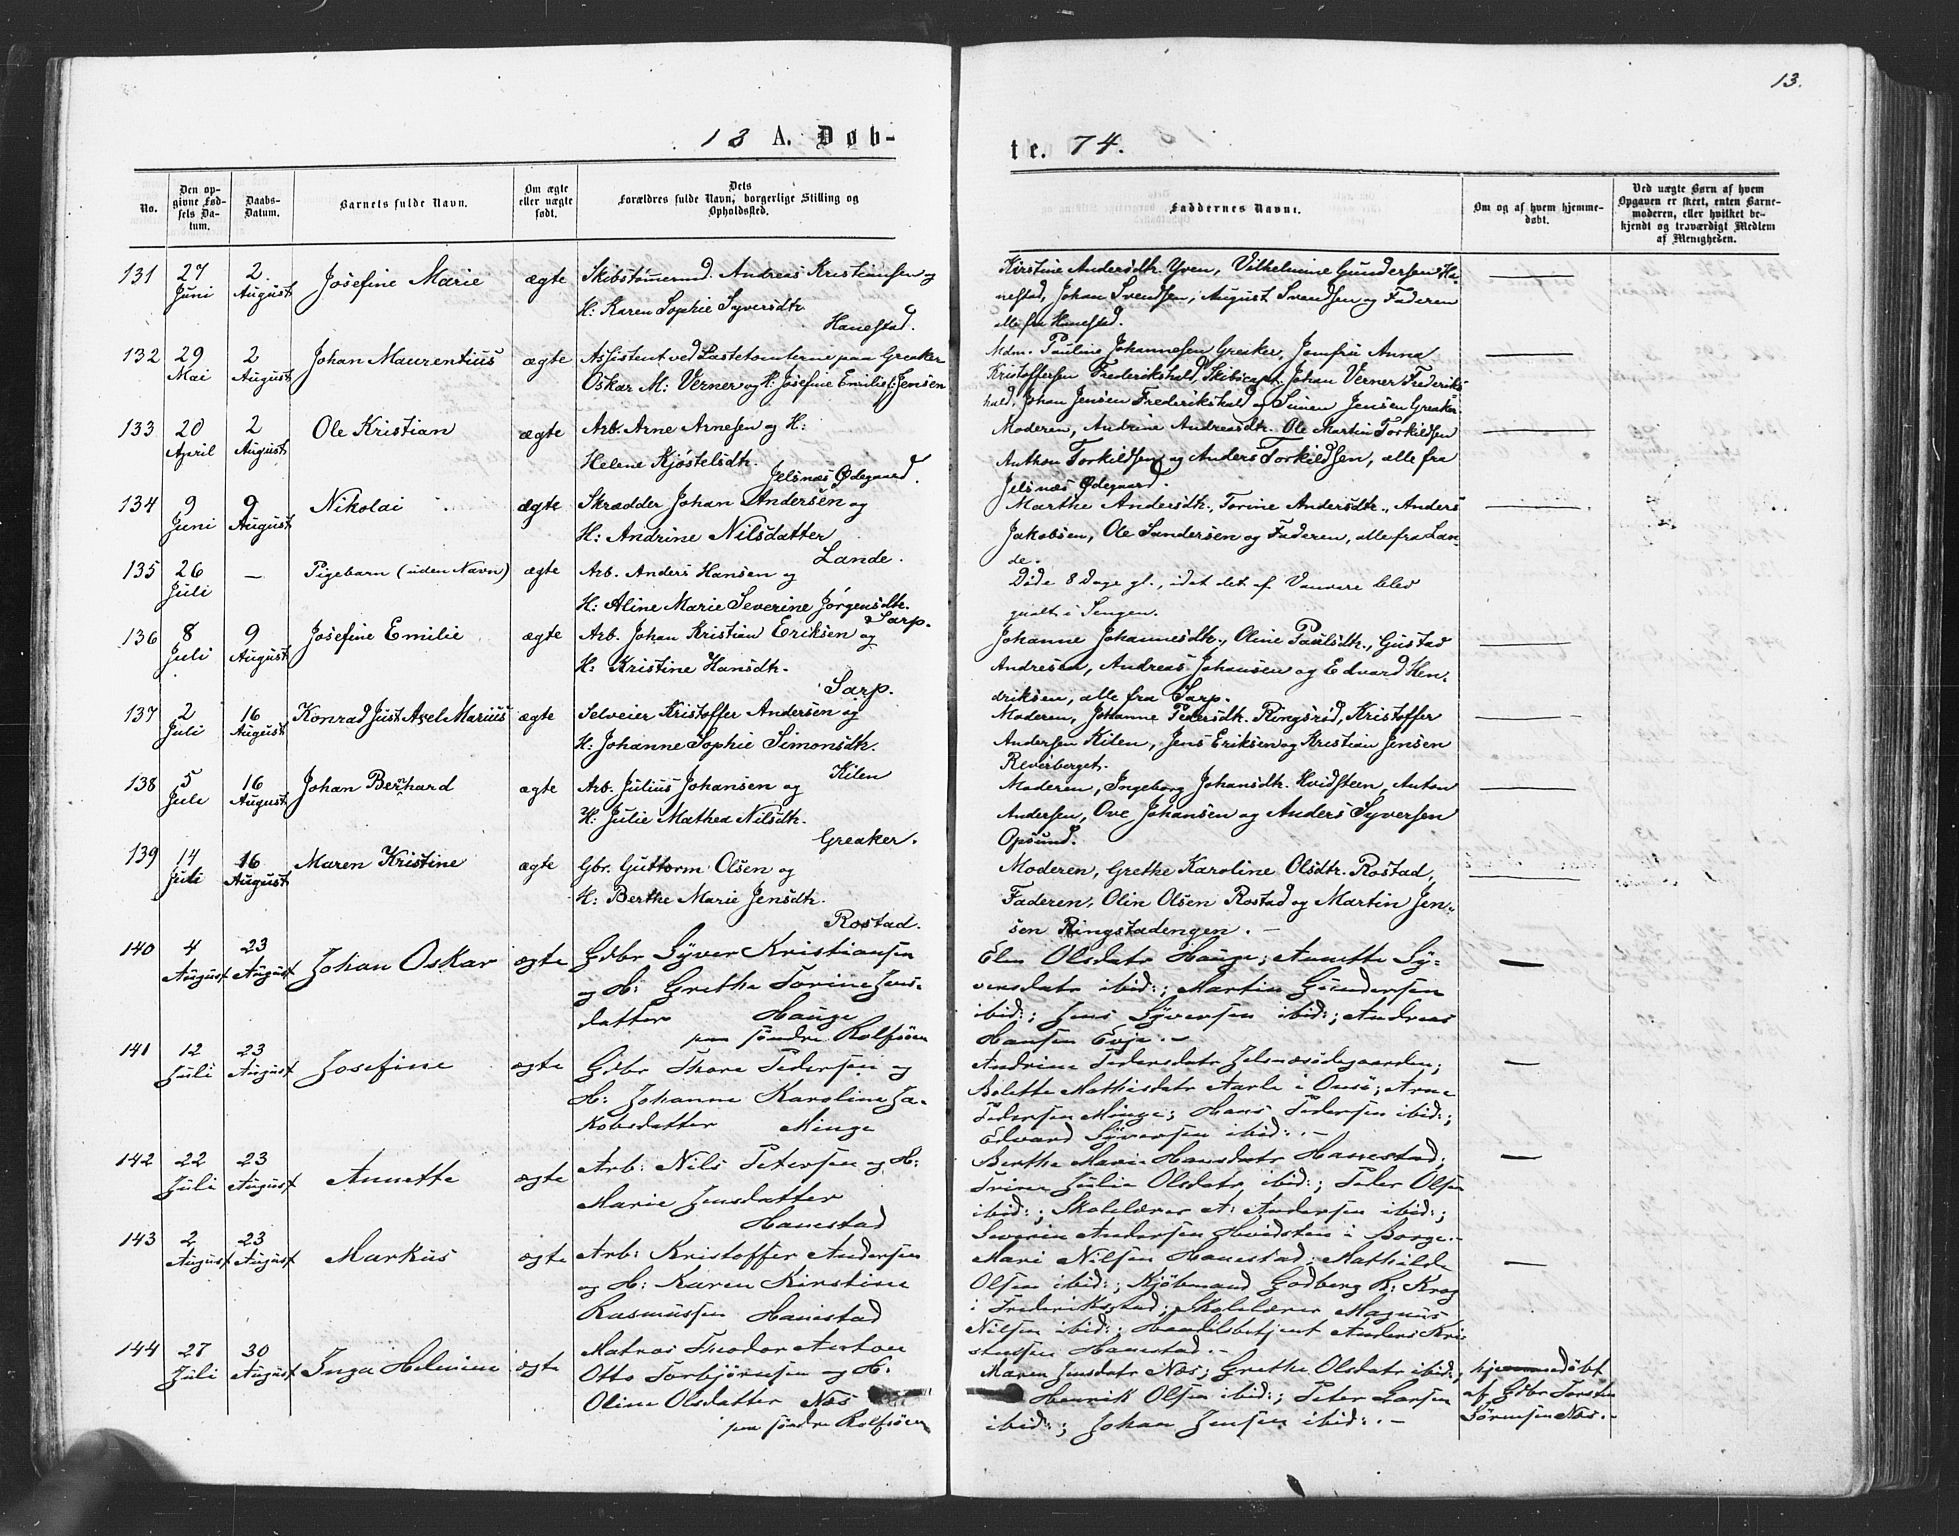 13.
18 A. Døb-
te. 74.
No.
Den op-
givne Fød-
sels Da-
tum.
Daabs-
Datum.
Barnets fulde Navn.
Om ægte
eller uægte
født.
Dets
Forældres fulde Navn, borgerlige Stilling og
Opholdssted.
Faddernes Navne.
Om og af hvem hjemme-
døbt.
Ved uægte Børn af hvem
Opgaven er skeet, enten Barne-
moderen, eller hvilket be-
kjendt og troværdigt Medlem
af Menigheden.
131 27 Juni 2. August Josefine Marie ægte
Skibstømermd. Andreas Kristiansen og
H: Karen Sophie Syversdtr.
Hanestad.
Kirstine Andersdtr. Yven, Vilhelmine Gundersen Ha-
nestad, Johan Svendsen, August Svendsen og Faderen
alle fra Hanestad.
132 29 Mai 2 August Johan Maurentius ægte
Assistent ved Lastetomterne paa Greaker
Oskar M: Verner og H: Josefine Emilie f: Jensen
Mdm. Pauline Johannesen Greaker, Jomfru Anna
Kristoffersen Frederikshald, Skibscapt. Johan Verner Frederiks-
hald, Johan Jensen Frederikshald og Simen Jensen Greaker
133 20 April 2 August Ole Kristian ægte
Arb. Arne Arnesen og H:
Helene Kjøstelsdtr.
Jelsnæs Ødegaard.
Moderen, Andrine Andreasdtr. Ole Martin Torkildsen
Anthon Torkildsen og Anders Torkildsen, alle fra
Jelsnæs Ødegaard.
134 9 Juni 9 August Nikolai ægte
Skrædder Johan Andersen og
H: Andrine Nilsdatter
Lande.
Marthe Andersdtr., Torine Andersdtr., Anders
Jakobsen, Ole Sandersen og Faderen, alle fra Lan-
de.
135 26 Juli — Pigebarn (uden Navn) ægte
Arb. Anders Hansen og
H: Aline Marie Severine Jørgensdtr.
Sarp.
Døde 8 Dage gl., idet det af Vanvare blev
qualt i Sengen.
136 8 Juli 9 August Josefine Emilie ægte
Arb. Johan Kristian Eriksen og
H: Kristine Hansdtr.
Sarp.
Johanne Johannesdtr., Oline Paulsdtr., Gustad
Andresen, Andreas Johansen og Edvard Hen-
driksen, alle fra Sarp.
137 2 Juli 16 August Konrad Just Axel Marius ægte
Selveier Kristoffer Andersen og
H: Johanne Sophie Simonsdtr.
Kilen
Moderen, Johanne Pedersdtr. Ringsrød, Kristoffer
Andersen Kilen, Jens Eriksen og Kristian Jensen
Reverberget.
138 5 Juli 16 August Johan Bernhard ægte
Arb. Julius Johansen og
H: Julie Mathea Nilsdtr.
Greaker.
Moderen, Ingeborg Johansdtr. Hvidsteen, Anton
Andersen, Ove Johansen og Anders Syversen
Opsund.
139 14 Juli 16 August Maren Kristine ægte
Gbr. Guttorm Olsen og
H: Berthe Marie Jensdtr.
Rostad.
Moderen, Grethe Karoline Olsdtr. Rostad,
Faderen, Olin Olsen Rostad og Martin Jen-
sen Ringstadengen.
140 4 August 23 August Johan Oskar ægte
Gdbr Syver Kristiansen
og H: Grethe Torine Jens-
datter Hauge
paa søndre Rolfsøen
Elen Olsdatr Hauge; Annette Sy-
versdatr ibid:; Martin Gundersen
ibid:; Jens Syversen ibid:; Andreas
Hansen Evje.
141 12 Juli 23 August Josefine ægte
Gdbr Thore Pedersen og
H: Johanne Karoline Ja-
kobsdatter Minge
Andrine Pedersdatr Jelsnæsødegaarden;
Bolette Mathisdatr Aarle i Onsø; Arne
Pedersen Minge; Hans Pedersen ibid:;
Edvard Syversen ibid:.
142 22 Juli 23 August Annette ægte
Arb: Nils Petersen og H:
Marie Jensdatter
Hanestad
Berthe Marie Hansdatr Hanestad;
Trine Julie Olsdatr ibid:; Peder Olsen
ibid:; Skolelærer A: Andersen ibid:;
Severin Andersen Hvidsten i Borge.
143 2 August 23 August Markus ægte
Arb: Kristoffer Andersen
og H: Karen Kirstine
Rasmussen Hanestad
Mari Nilsen Hanestad; Mathilde
Olsen ibid:; Kjøbmand Godberg R: Krog
i Frederiksstad; Skolelærer Magnus
Nilsen ibid:; Handelsbetjent Anders Kri
stensen Hanestad.
144 27 Juli 30 August Inga Helmine ægte
Matros Theodor Anton
Otto Torbjørnsen og H:
Oline Olsdatter Næs
paa søndre Rolfsøen
Maren Jensdatr Næs; Grethe Olsdatr ibid:;
Henrik Olsen ibid:; Peter Larsen
ibid:; Johan Jensen ibid:.
hjemmedøbt
af Gdbr Torsten
Sørensen Næs.